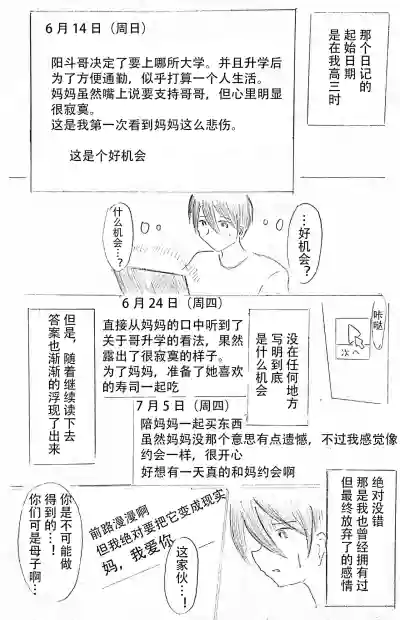 那个日记的
起始日期
是在我高三时
6月14日（周日）
阳斗哥决定了要上哪所大学。并且升学后
为了方便通勤，似乎打算一个人生活。
妈妈虽然嘴上说要支持哥哥，但心里明显
很寂寞。
这是我第一次看到妈妈这么悲伤。
这是个好机会
…好机会？
什么机会…？
咔哒
次へ
6月24日（周四）
直接从妈妈的口中听到了
关于哥升学的看法，果然
露出了很寂寞的样子。
为了妈妈，准备了她喜欢
的寿司一起吃
没在任何地方
写明到底
是什么机会
但是，随着继续读下去
答案也渐渐的浮现了出来
7月5日（周四）
陪妈妈一起买东西
虽然妈妈没那个意思有点遗憾，不过我感觉像
约会一样，很开心
好想有一天真的和妈约会啊
绝对没错
那是我也曾经拥有过
但最终放弃了的感情
前路漫漫啊
但我绝对要把它变成现实
妈，我爱你
这家伙…！
你是不可能做
得到的…！
你们可是母子啊…